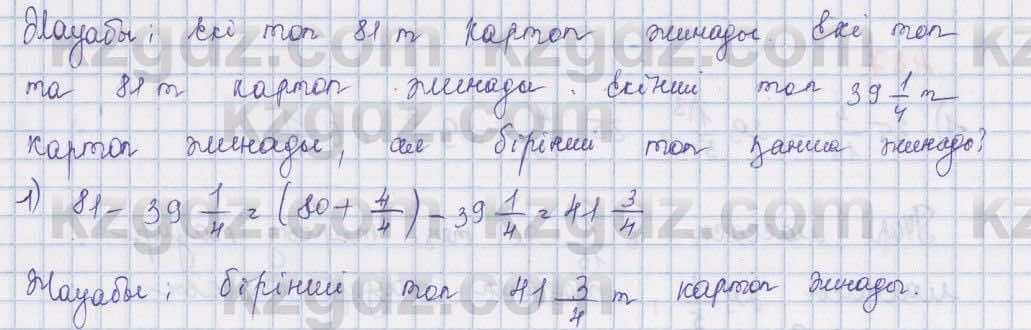 Жауабы: Екі топ 81 т картоп жинады. Екі топ
та 81 т картоп жинады. Екінші топ 39 1/4 т
картоп жинады, ал бірінші топ қанша жинады?
1) 81 - 39 1/4 = (80 + 4/4) - 39 1/4 = 41 3/4
Жауабы: бірінші топ 41 3/4 т картоп жинады.
kzgdz.com